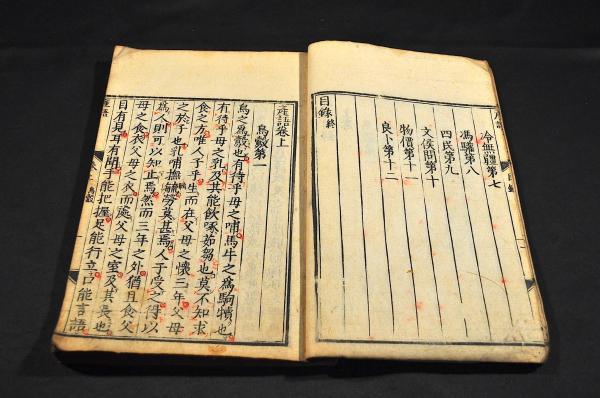 冷無疆第七
馮驩第八
四民第九
文侯問第十
物價第十一
良卜第十二
目錄終
産語卷上
烏鷇第一
烏之爲鷇也有待乎母之哺馬牛之爲駒犢也
有待乎母之乳及其能飲啄茹芻也莫不知求
食之方唯人子乎生而在父母之懷三年父母
之於子也乳哺撫毓勞莫甚焉人子受之得以
爲人則可以知止焉然而三年之外猶且食父
母之食衣父母之衣而處父母之室及其長也
目有見耳有聞手能把握足能行立口能言語